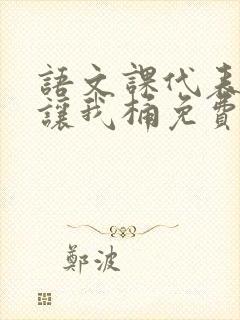 語文課代表
讓我桶免費
鄭波